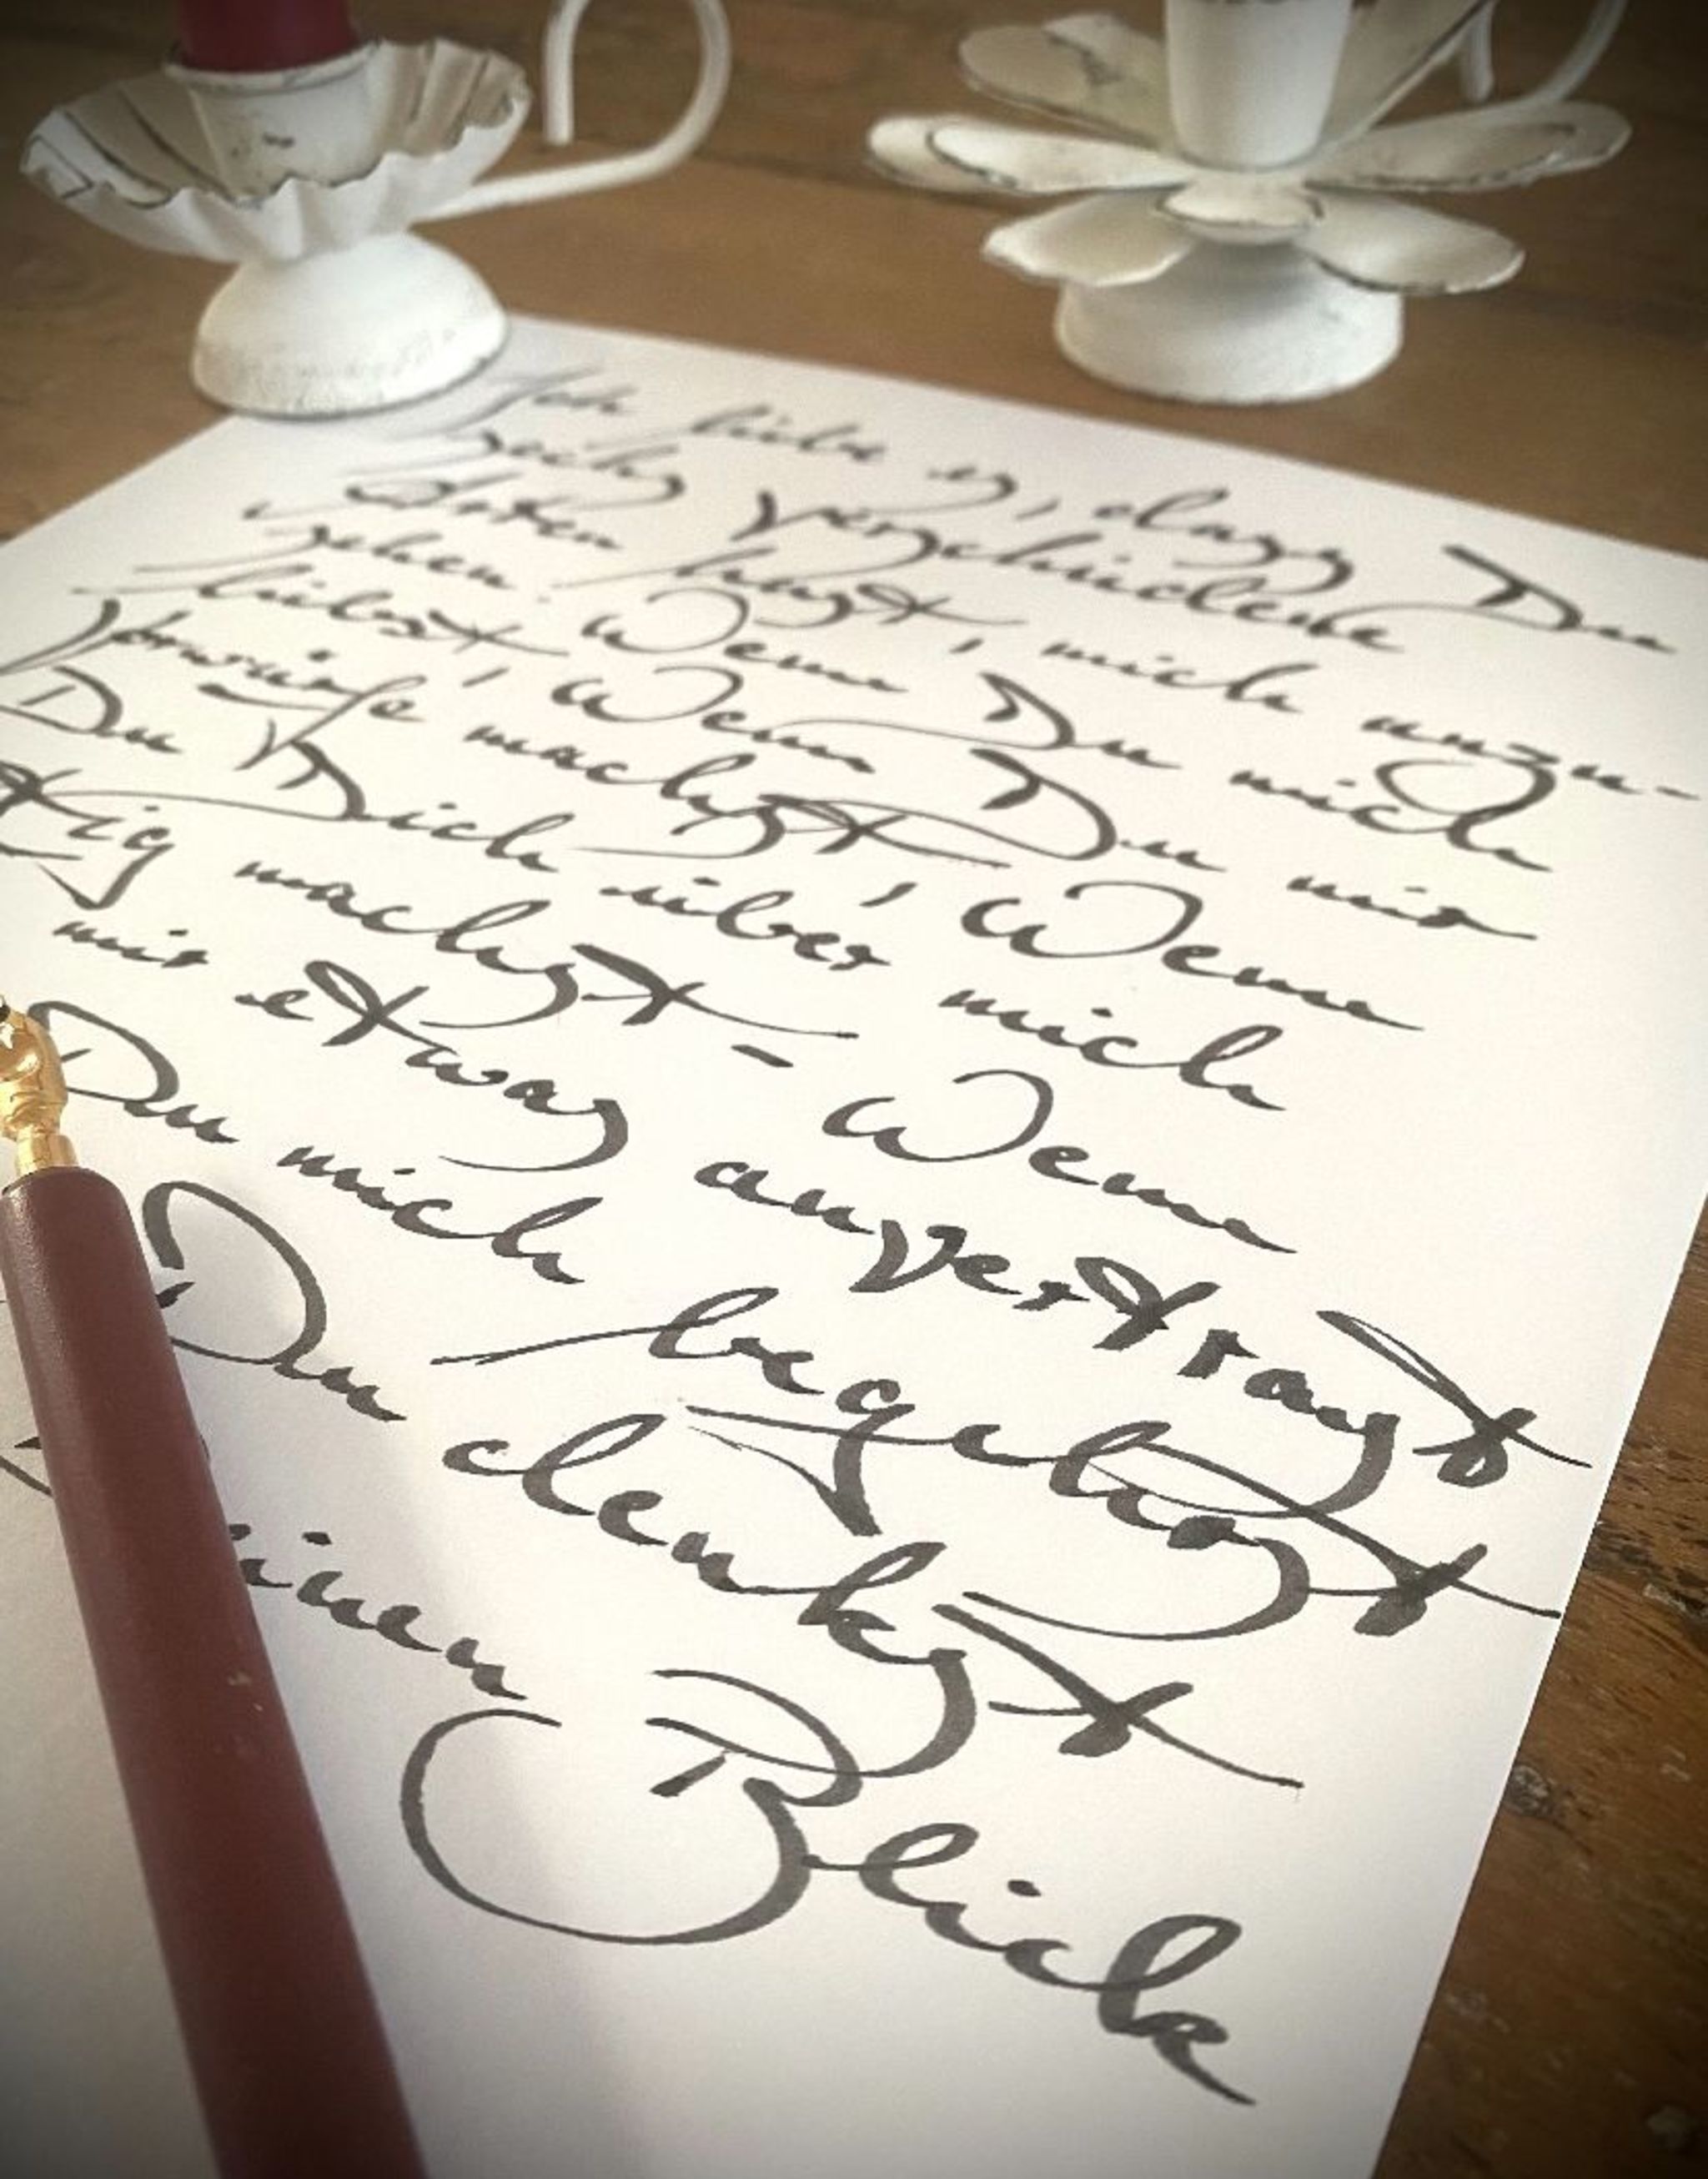 Ich liebe es, dass Du
sechs verschiedene
Arten hast, mich anzu-
sehen. Wenn Du mich
liebst, Wenn Du mir
Vorwürfe machst, Wenn
Du Dich über mich
tig machst - Wenn
mir etwas anvertraust
Du mich begehrst
Du denkst
inen Blick